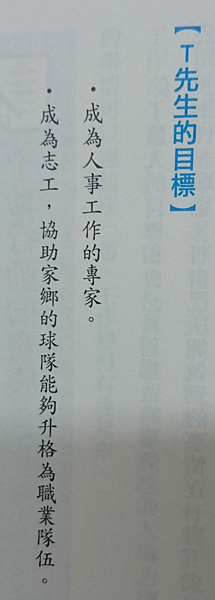 【T先生的目標】
・成為人事工作的專家。
・成為志工，協助家鄉的球隊能夠升格為職業隊伍。